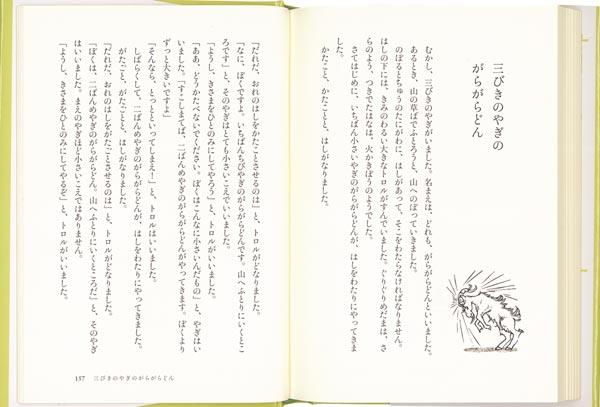 三びきのやぎの
がらがらどん
むかし、三びきのやぎがいました。名まえは、どれも、がらがらどんといいました。
あるとき、山の草ばでふとろうと、山へのぼっていきました。
のぼるとちゅうのたにがわに、はしがあって、そこをわたらなければなりません。
はしの下には、きみのわるい大きなトロルがすんでいました。ぐりぐりめだまは、さ
らのよう、つきでたはなは、火かきぼうのようでした。
さてはじめに、いちばん小さいやぎのがらがらどんが、はしをわたりにやってきま
した。
かたこと、かたことと、はしがなりました。
「だれだ、おれのはしをかたことさせるのは」と、トロルがどなりました。
「なに、ぼくですよ。いちばんちびやぎのがらがらどんです。山へふとりにいくとこ
ろです」と、そのやぎはとても小さいこえでいいました。
「ようし、きさまをひとのみにしてやろう」と、トロルがいいました。
「ああ、どうかたべないでください。ぼくはこんなに小さいんだもの」と、やぎはい
いました。「すこしまてば、二ばんめやぎのがらがらどんがやってきます。ぼくより
ずっと大きいですよ」
「そんなら、とっとといってしまえ！」と、トロルはいいました。
しばらくして、二ばんめやぎのがらがらどんが、はしをわたりにやってきました。
がたごと、がたごとと、はしがなりました。
「だれだ、おれのはしをがたごとさせるのは」と、トロルがどなりました。
「ぼくは、二ばんめやぎのがらがらどん。山へふとりにいくところだ」と、そのやぎ
はいいました。まえのやぎほど小さいこえではありません。
「ようし、きさまをひとのみにしてやるぞ」と、トロルがいいました。
157 三びきのやぎのがらがらどん